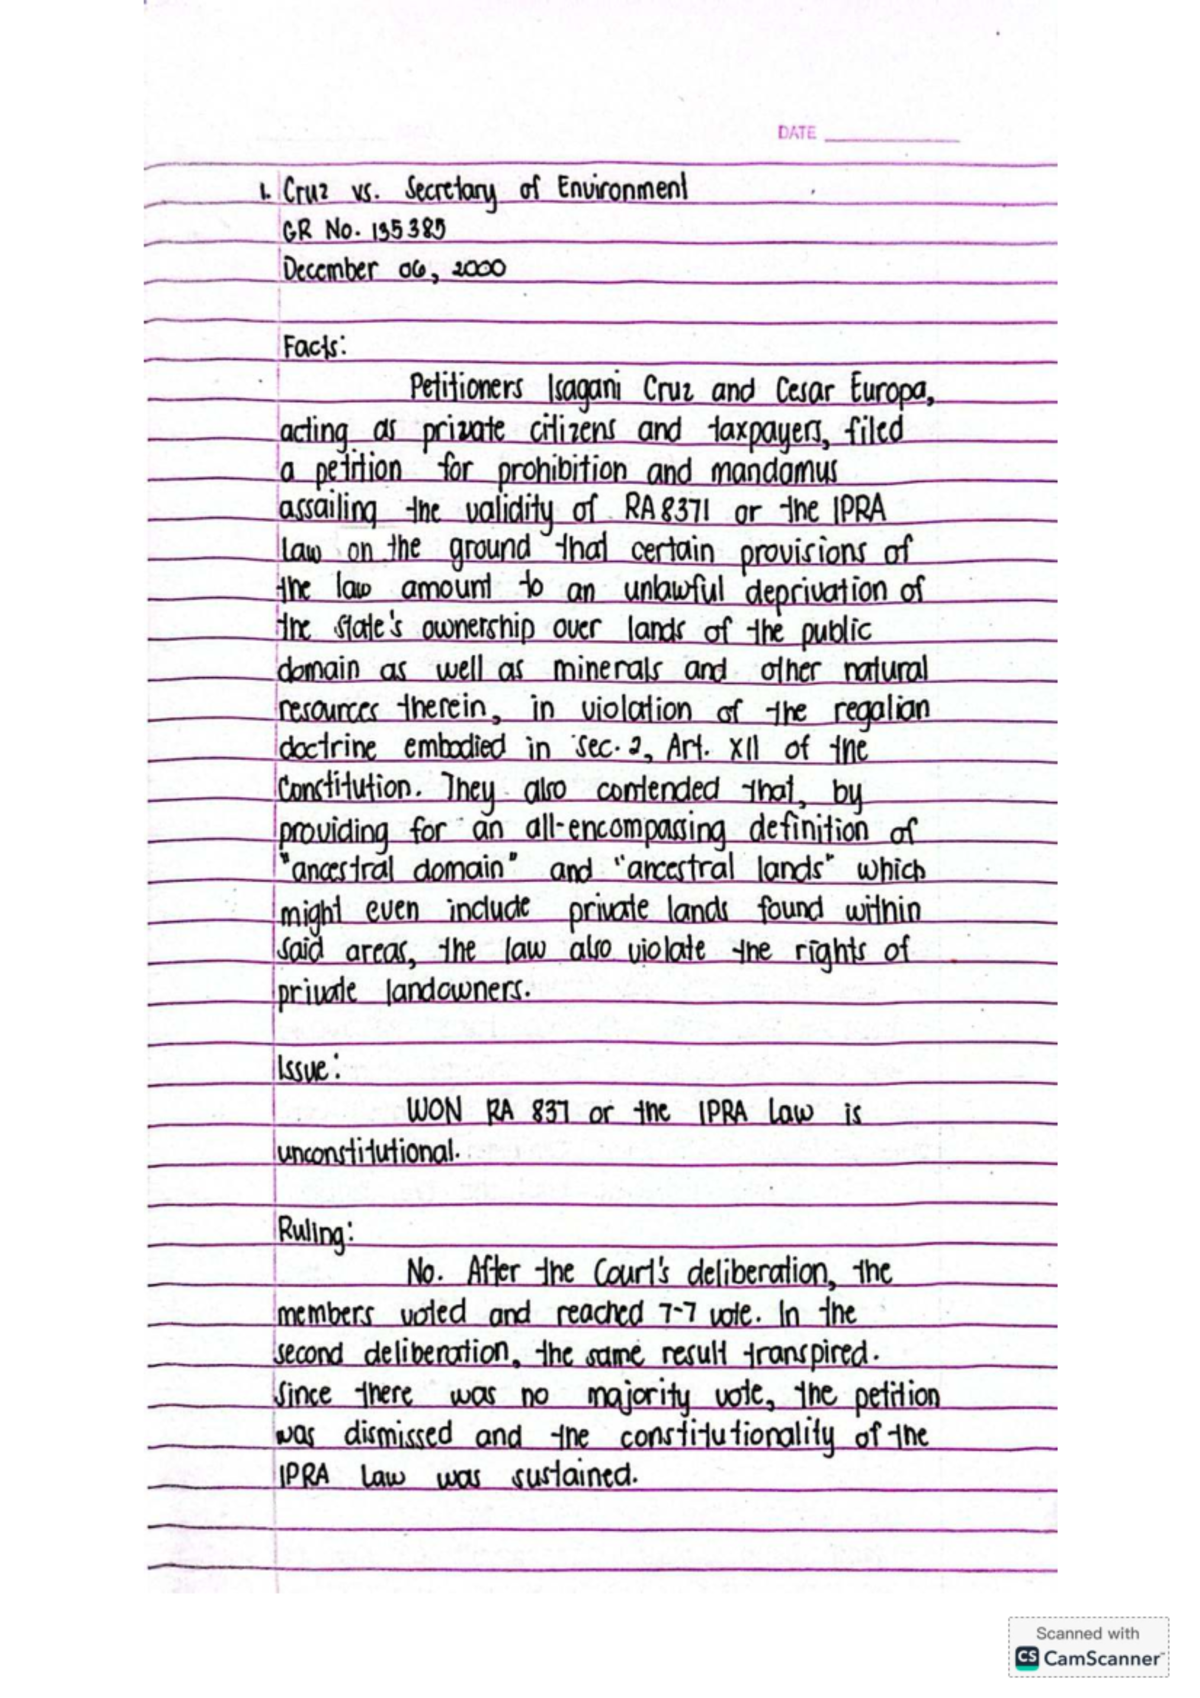 DATE
1. Cruz vs. Secretary of Environment
GR No. 135385
December 06, 2000
Facts:
Petitioners Isagani Cruz and Cesar Europa,
acting as private citizens and taxpayers, filed
a petition for prohibition and mandamus
assailing the validity of RA 8371 or the IPRA
Law on the ground that certain provisions of
the law amount to an unlawful deprivation of
the state's ownership over lands of the public
domain as well as minerals and other natural
resources therein, in violation of the regalian
doctrine embodied in Sec. 2, Art. XII of the
Constitution. They also contended that, by
providing for an all-encompassing definition of
"ancestral domain" and "ancestral lands" which
might even include private lands found within
said areas, the law also violate the rights of
private landowners.
Issue:
WON RA 837 or the IPRA Law is
unconstitutional.
Ruling:
No. After the Court's deliberation, the
members voted and reached 7-7 vote. In the
second deliberation, the same result transpired.
Since there was no majority vote, the petition
was dismissed and the constitutionality of the
IPRA Law was sustained.
Scanned with
CS CamScanner